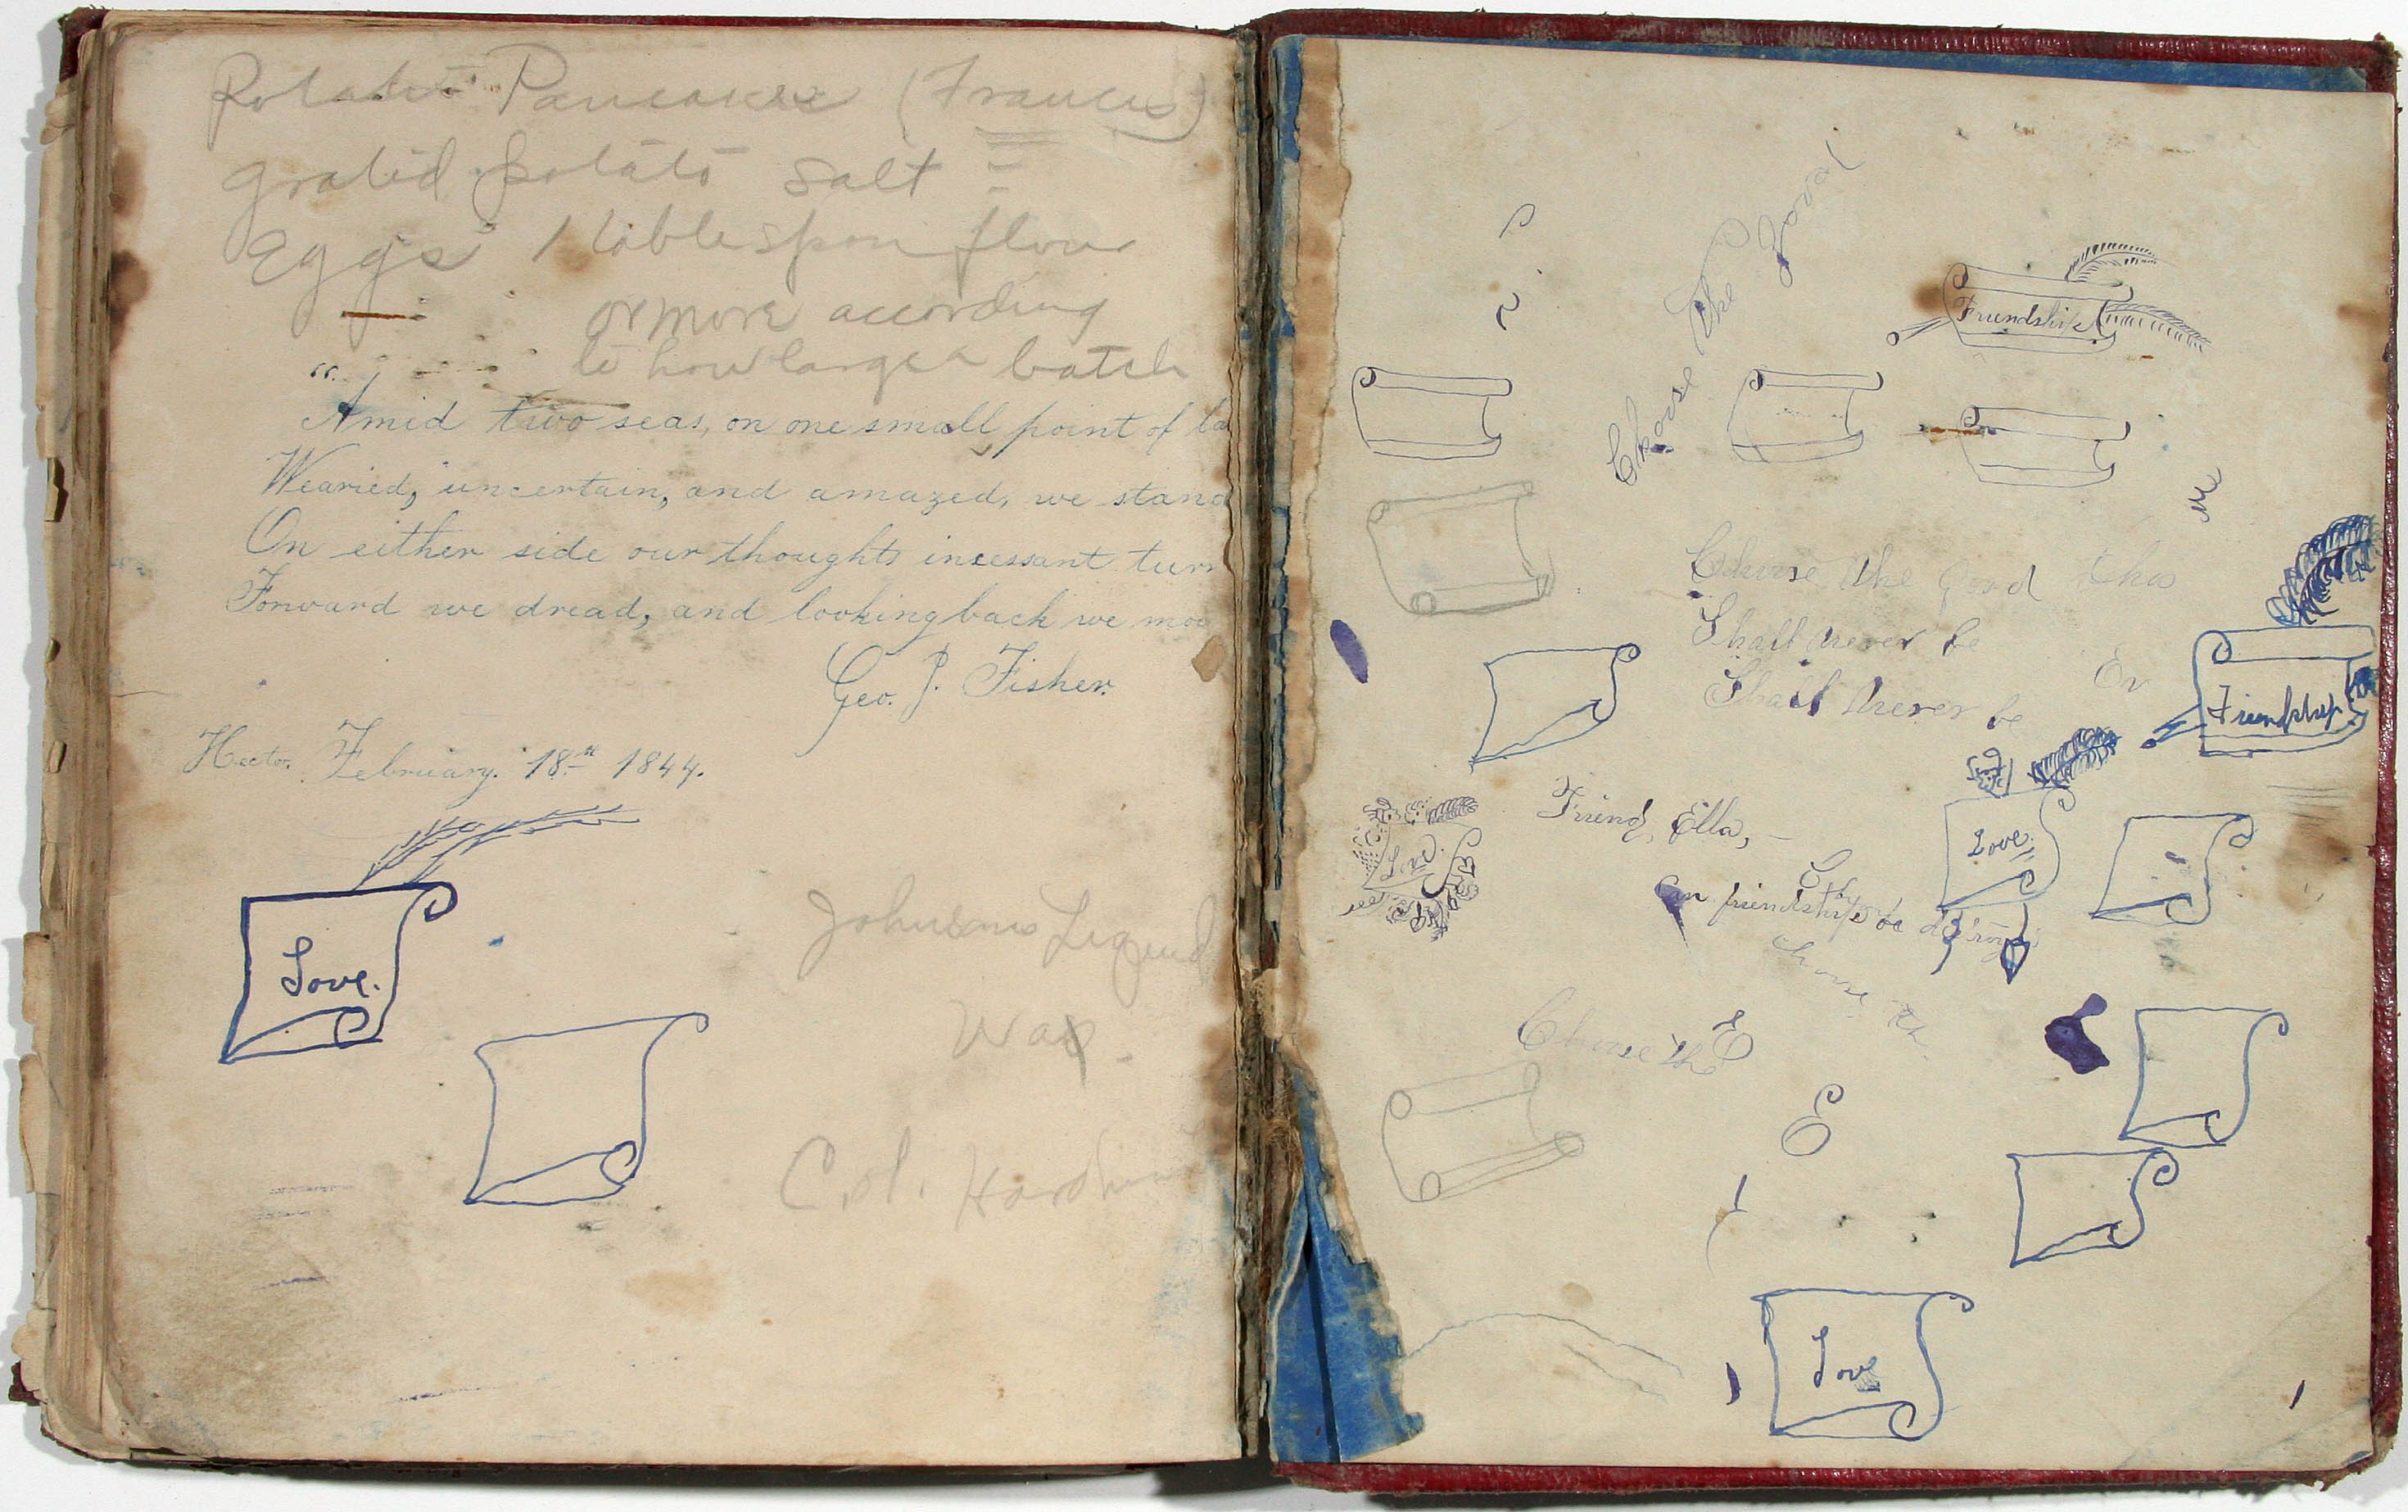 Potato Pancakes (Francis)
grated potato salt
Eggs 1 tablespon flour
or more according
to how large a batch
"Amid two seas, on one small point of la
Wearied, uncertain, and amazed, we stand
On either side our thoughts incessant turn
Forward we dread, and looking back we mou
Geo. J. Fisher.
Hector. February. 18th 1844.
Love.
Johnsons Liquid
Wax
Col.
Choose the good
Friendship
M
Choose the good tha
Shall never be
Shall never be
Er
Friendship
Friend, Ella, —
Love.
Love.
Can friendship be
Choose th
Choose th
E
E
Love